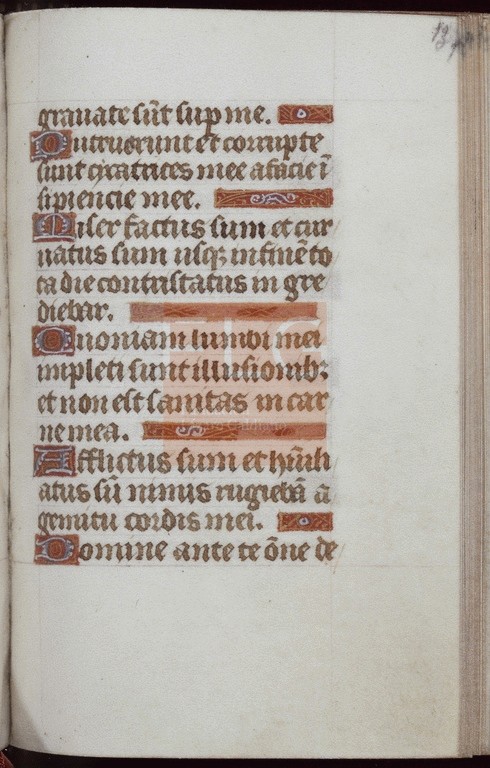 13
grauate sūt sup me.
Putruerunt et corrupte
sunt cicatrices mee a facie ī
sipiencie mee.
Miser factus sum et cur
uatus sum usqꝫ in finē to
ta die contristatus in gre
diebar.
Quoniam lumbi mei
impleti sunt illusionibꝫ
et non est sanitas in car
ne mea.
Afflictus sum et hūili
atus sū nimis rugiebā a
gemitu cordis mei.
Domine ante te ōne de